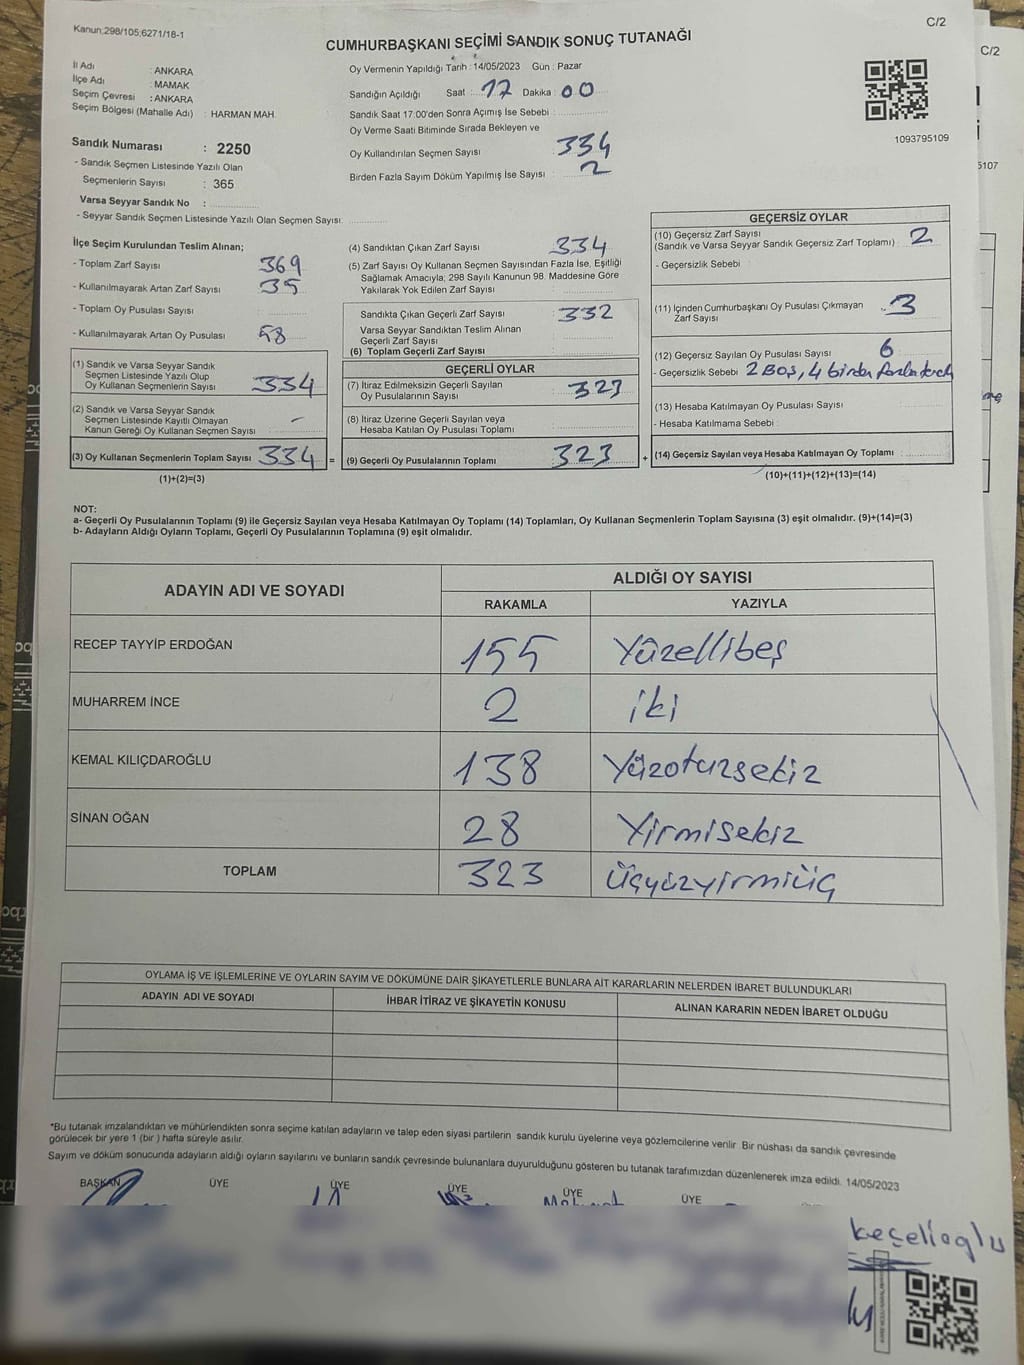 Kanun:298/105;6271/18-1
C/2
CUMHURBAŞKANI SEÇİMİ SANDIK SONUÇ TUTANAĞI
C/2
İl Adı : ANKARA
İlçe Adı : MAMAK
Seçim Çevresi : ANKARA
Seçim Bölgesi (Mahalle Adı) : HARMAN MAH.
Sandık Numarası : 2250
- Sandık Seçmen Listesinde Yazılı Olan
Seçmenlerin Sayısı : 365
Varsa Seyyar Sandık No :
- Seyyar Sandık Seçmen Listesinde Yazılı Olan Seçmen Sayısı:
Oy Vermenin Yapıldığı Tarih : 14/05/2023 Gün : Pazar
Sandığın Açıldığı Saat : 17 Dakika : 00
Sandık Saat 17:00'den Sonra Açımış İse Sebebi :
Oy Verme Saati Bitiminde Sırada Bekleyen ve
Oy Kullandırılan Seçmen Sayısı : 334
Birden Fazla Sayım Döküm Yapılmış İse Sayısı : 2
1093795109
5107
İlçe Seçim Kurulundan Teslim Alınan;
- Toplam Zarf Sayısı : 369
- Kullanılmayarak Artan Zarf Sayısı : 35
- Toplam Oy Pusulası Sayısı :
- Kullanılmayarak Artan Oy Pusulası : 58
(1) Sandık ve Varsa Seyyar Sandık
Seçmen Listesinde Yazılı Olup
Oy Kullanan Seçmenlerin Sayısı : 334
(2) Sandık ve Varsa Seyyar Sandık
Seçmen Listesinde Kayıtlı Olmayan
Kanun Gereği Oy Kullanan Seçmen Sayısı : -
(3) Oy Kullanan Seçmenlerin Toplam Sayısı : 334 =
(1)+(2)=(3)
(4) Sandıktan Çıkan Zarf Sayısı : 334
(5) Zarf Sayısı Oy Kullanan Seçmen Sayısından Fazla İse, Eşitliği
Sağlamak Amacıyla; 298 Sayılı Kanunun 98. Maddesine Göre
Yakılarak Yok Edilen Zarf Sayısı :
Sandıkta Çıkan Geçerli Zarf Sayısı : 332
Varsa Seyyar Sandıktan Teslim Alınan
Geçerli Zarf Sayısı :
(6) Toplam Geçerli Zarf Sayısı :
GEÇERLİ OYLAR
(7) İtiraz Edilmeksizin Geçerli Sayılan
Oy Pusulalarının Sayısı : 323
(8) İtiraz Üzerine Geçerli Sayılan veya
Hesaba Katılan Oy Pusulası Toplamı :
(9) Geçerli Oy Pusulalarının Toplamı : 323 +
GEÇERSİZ OYLAR
(10) Geçersiz Zarf Sayısı
(Sandık ve Varsa Seyyar Sandık Geçersiz Zarf Toplamı) : 2
- Geçersizlik Sebebi :
(11) İçinden Cumhurbaşkanı Oy Pusulası Çıkmayan
Zarf Sayısı : 3
(12) Geçersiz Sayılan Oy Pusulası Sayısı : 6
- Geçersizlik Sebebi : 2 Boş, 4 birden fazla tercih
(13) Hesaba Katılmayan Oy Pusulası Sayısı :
- Hesaba Katılmama Sebebi :
(14) Geçersiz Sayılan veya Hesaba Katılmayan Oy Toplamı :
(10)+(11)+(12)+(13)=(14)
NOT:
a- Geçerli Oy Pusulalarının Toplamı (9) ile Geçersiz Sayılan veya Hesaba Katılmayan Oy Toplamı (14) Toplamları, Oy Kullanan Seçmenlerin Toplam Sayısına (3) eşit olmalıdır. (9)+(14)=(3)
b- Adayların Aldığı Oyların Toplamı, Geçerli Oy Pusulalarının Toplamına (9) eşit olmalıdır.
ADAYIN ADI VE SOYADI
ALDIĞI OY SAYISI
RAKAMLA YAZIYLA
RECEP TAYYİP ERDOĞAN 155 Yüzellibeş
MUHARREM İNCE 2 iki
KEMAL KILIÇDAROĞLU 138 Yüzotuzsekiz
SİNAN OĞAN 28 Yirmisekiz
TOPLAM 323 Üçyüzyirmiüç
OYLAMA İŞ VE İŞLEMLERİNE VE OYLARIN SAYIM VE DÖKÜMÜNE DAİR ŞİKAYETLERLE BUNLARA AİT KARARLARIN NELERDEN İBARET BULUNDUKLARI
ADAYIN ADI VE SOYADI İHBAR İTİRAZ VE ŞİKAYETİN KONUSU ALINAN KARARIN NEDEN İBARET OLDUĞU
*Bu tutanak imzalandıktan ve mühürlendikten sonra seçime katılan adayların ve talep eden siyasi partilerin sandık kurulu üyelerine veya gözlemcilerine verilir. Bir nüshası da sandık çevresinde
görülecek bir yere 1 (bir) hafta süreyle asılır.
Sayım ve döküm sonucunda adayların aldığı oyların sayılarını ve bunların sandık çevresinde bulunanlara duyurulduğunu gösteren bu tutanak tarafımızdan düzenlenerek imza edildi. 14/05/2023
BAŞKAN ÜYE ÜYE ÜYE ÜYE ÜYE
keçelioglu